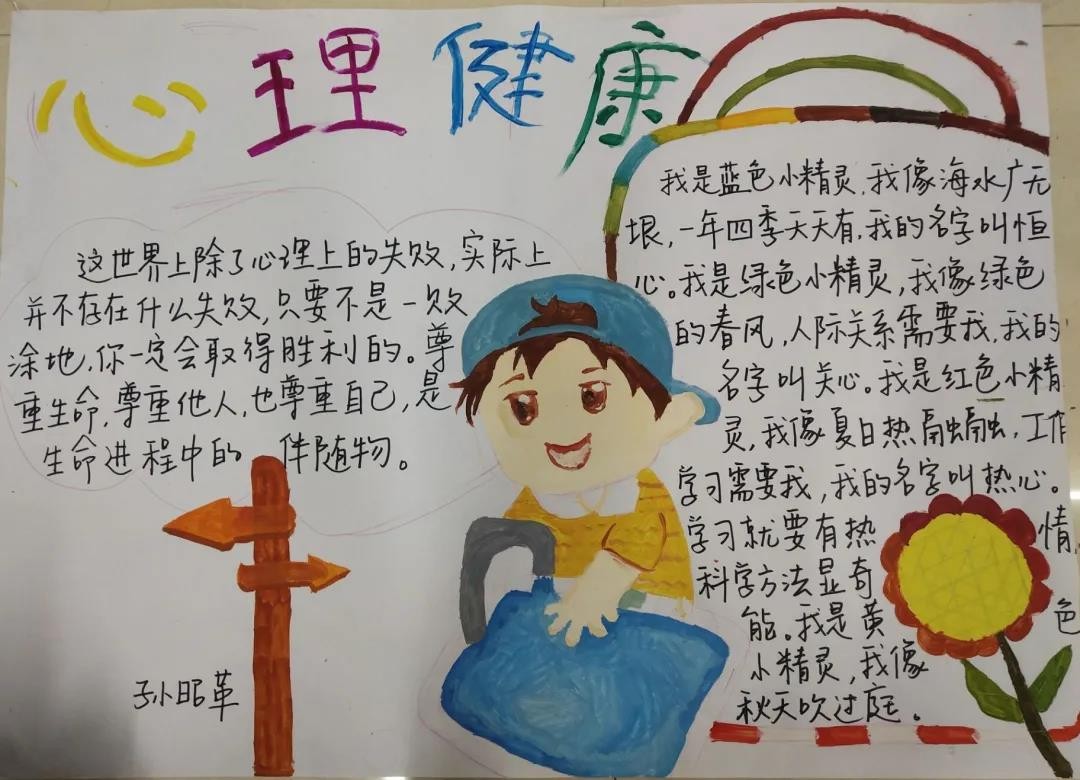 心理健康
这世界上除了心理上的失败，实际上
并不存在什么失败，只要不是一败
涂地，你一定会取得胜利的。尊
重生命，尊重他人，也尊重自己，是
生命进程中的 伴随物。
我是蓝色小精灵，我像海水广无
垠，一年四季天天有，我的名字叫恒
心。我是绿色小精灵，我像绿色
的春风，人际关系需要我，我的
名字叫关心。我是红色小精
灵，我像夏日热融融，工作
学习需要我，我的名字叫热心。
学习就要有热 情
科学方法显奇
能。我是黄 色
小精灵，我像
秋天吹过庭。
孙昭革